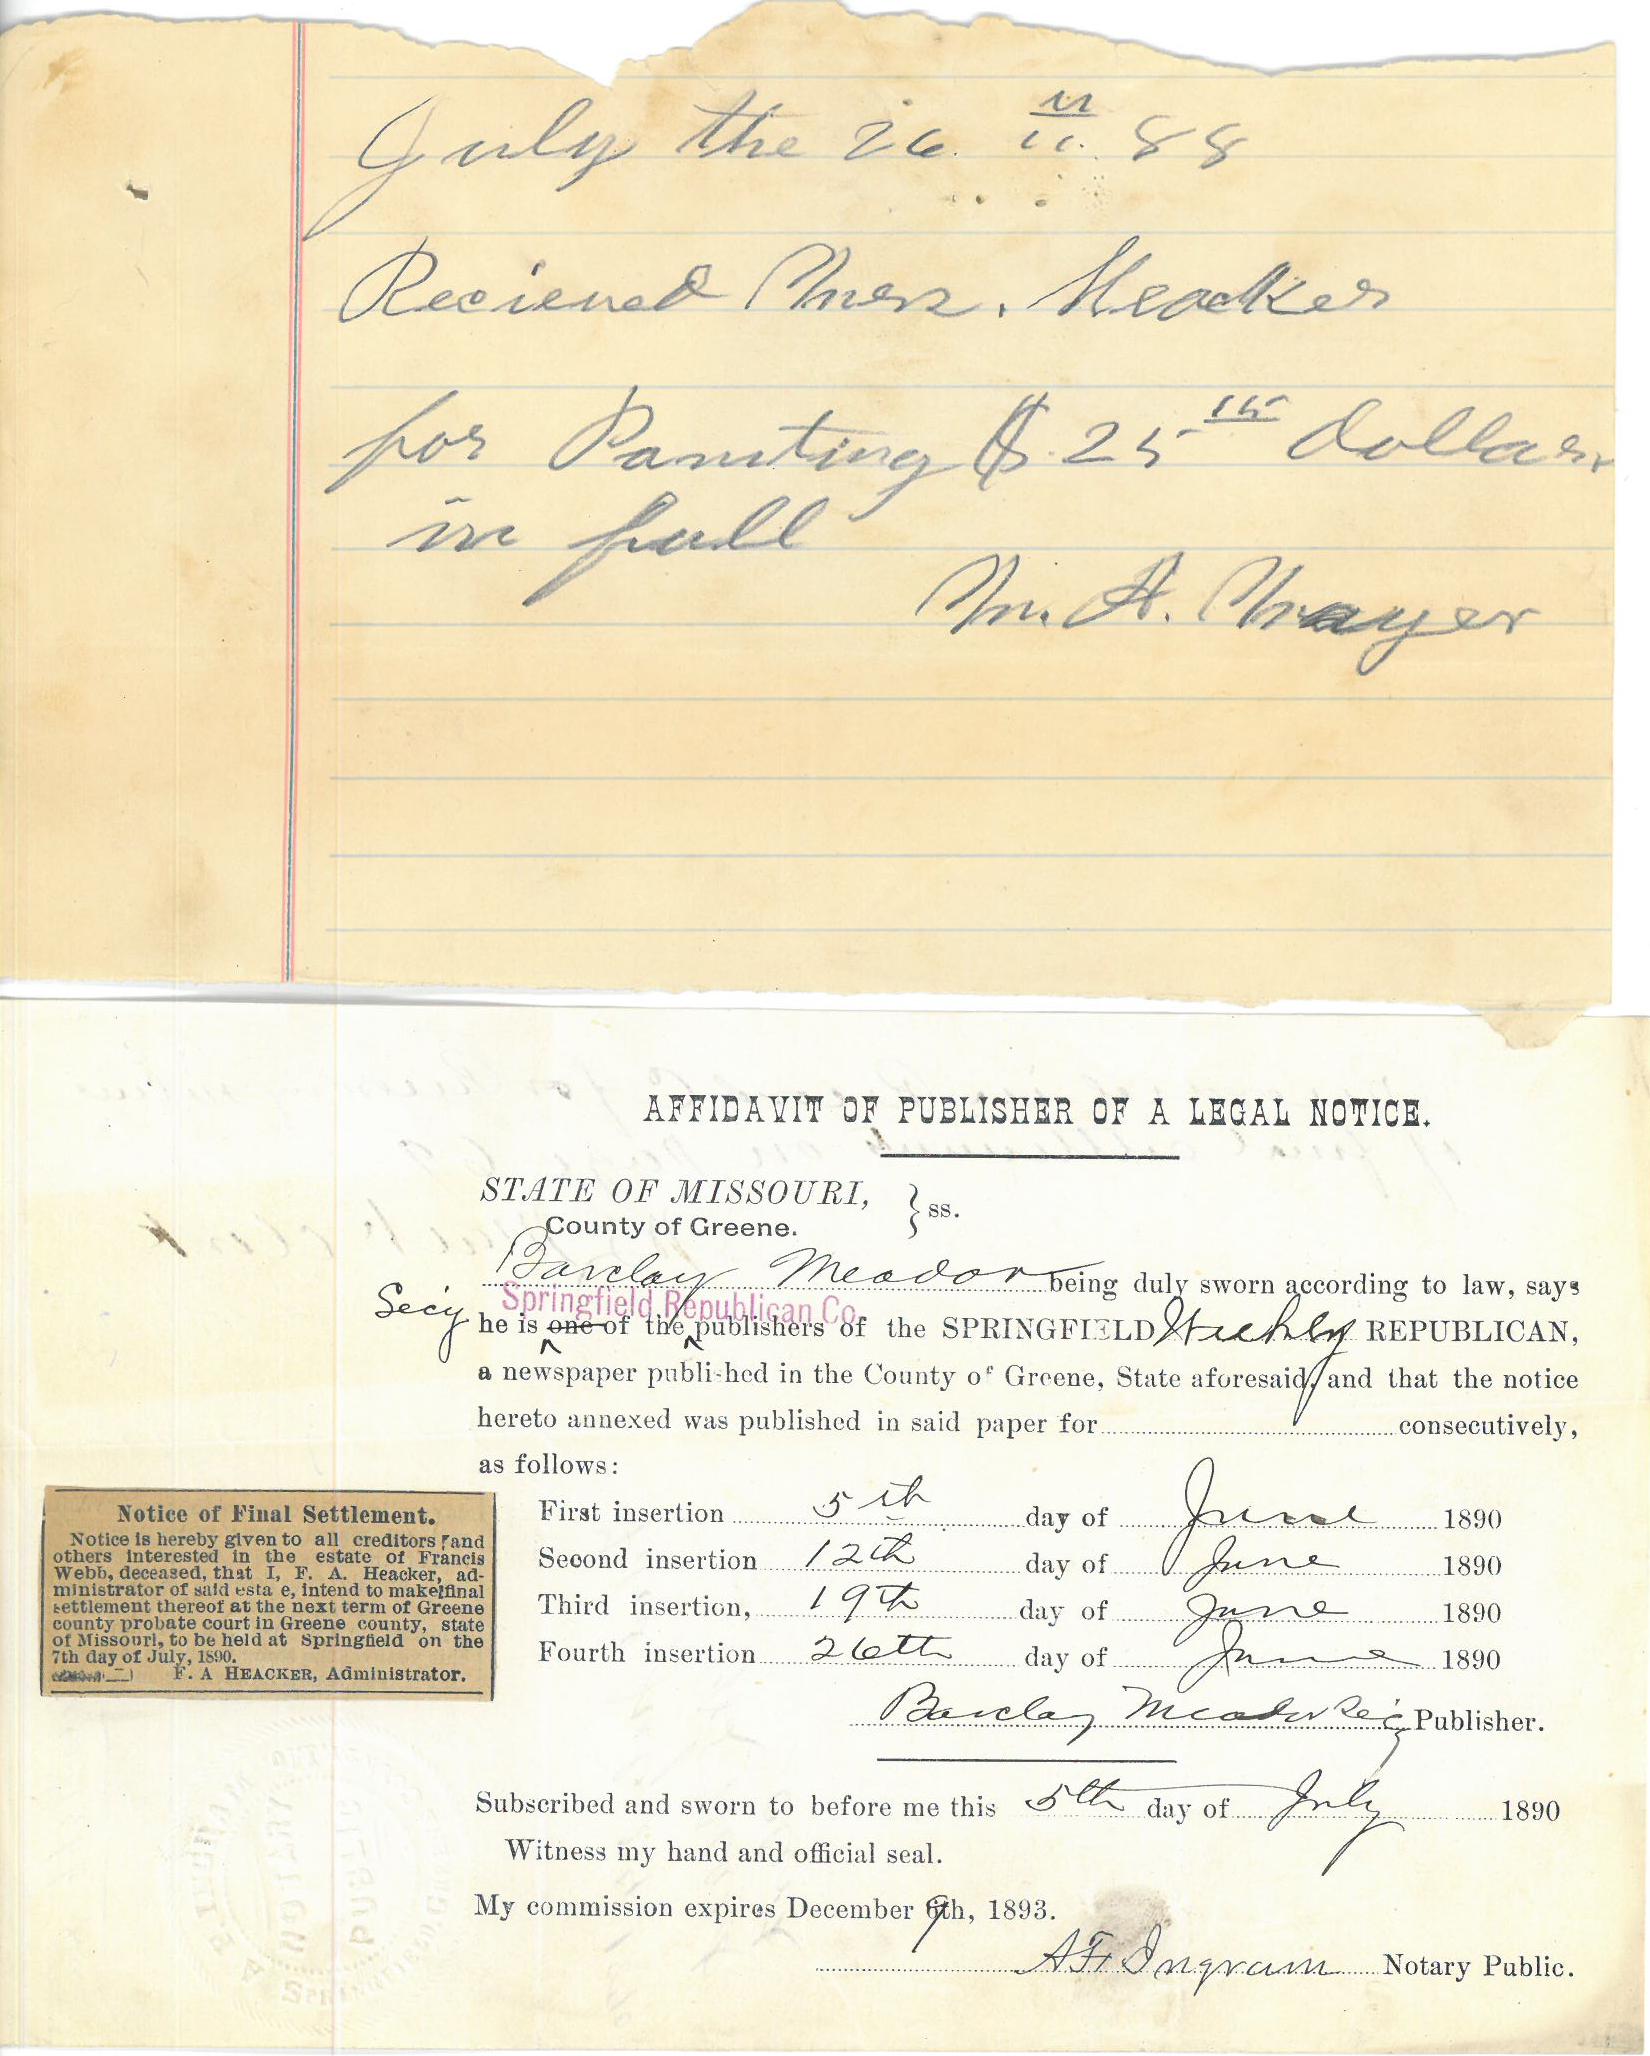 July the 26. 88
Recieved Mers. Heacker
for Painting $ 25 dollars
in full
M. A. Mayer
AFFIDAVIT OF PUBLISHER OF A LEGAL NOTICE.
STATE OF MISSOURI, } ss.
County of Greene.
Barclay Meador being duly sworn according to law, says
Springfield Republican Co.
Secy he is one of the publishers of the SPRINGFIELD Weekly REPUBLICAN,
a newspaper published in the County of Greene, State aforesaid, and that the notice
hereto annexed was published in said paper for consecutively,
as follows:
First insertion 5th day of June 1890
Second insertion 12th day of June 1890
Third insertion, 19th day of June 1890
Fourth insertion 26th day of June 1890
Barclay Meador Secy Publisher.
Notice of Final Settlement.
Notice is hereby given to all creditors and
others interested in the estate of Francis
Webb, deceased, that I, F. A. Heacker, ad-
ministrator of said esta e, intend to make final
settlement thereof at the next term of Greene
county probate court in Greene county, state
of Missouri, to be held at Springfield on the
7th day of July, 1890.
F. A HEACKER, Administrator.
Subscribed and sworn to before me this 5th day of July 1890
Witness my hand and official seal.
My commission expires December 9th, 1893.
A F Ingram Notary Public.